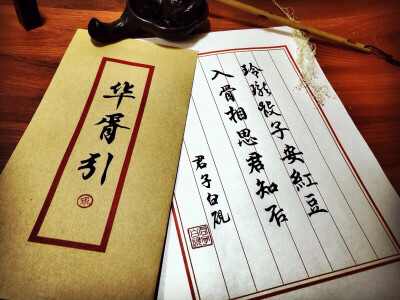 华胥引
玲瓏骰子安紅豆
入骨相思君知否
君子白硯